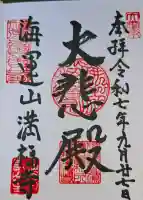 奉拝 令和七年九月廿七日
大悲殿
海運山 満福寺